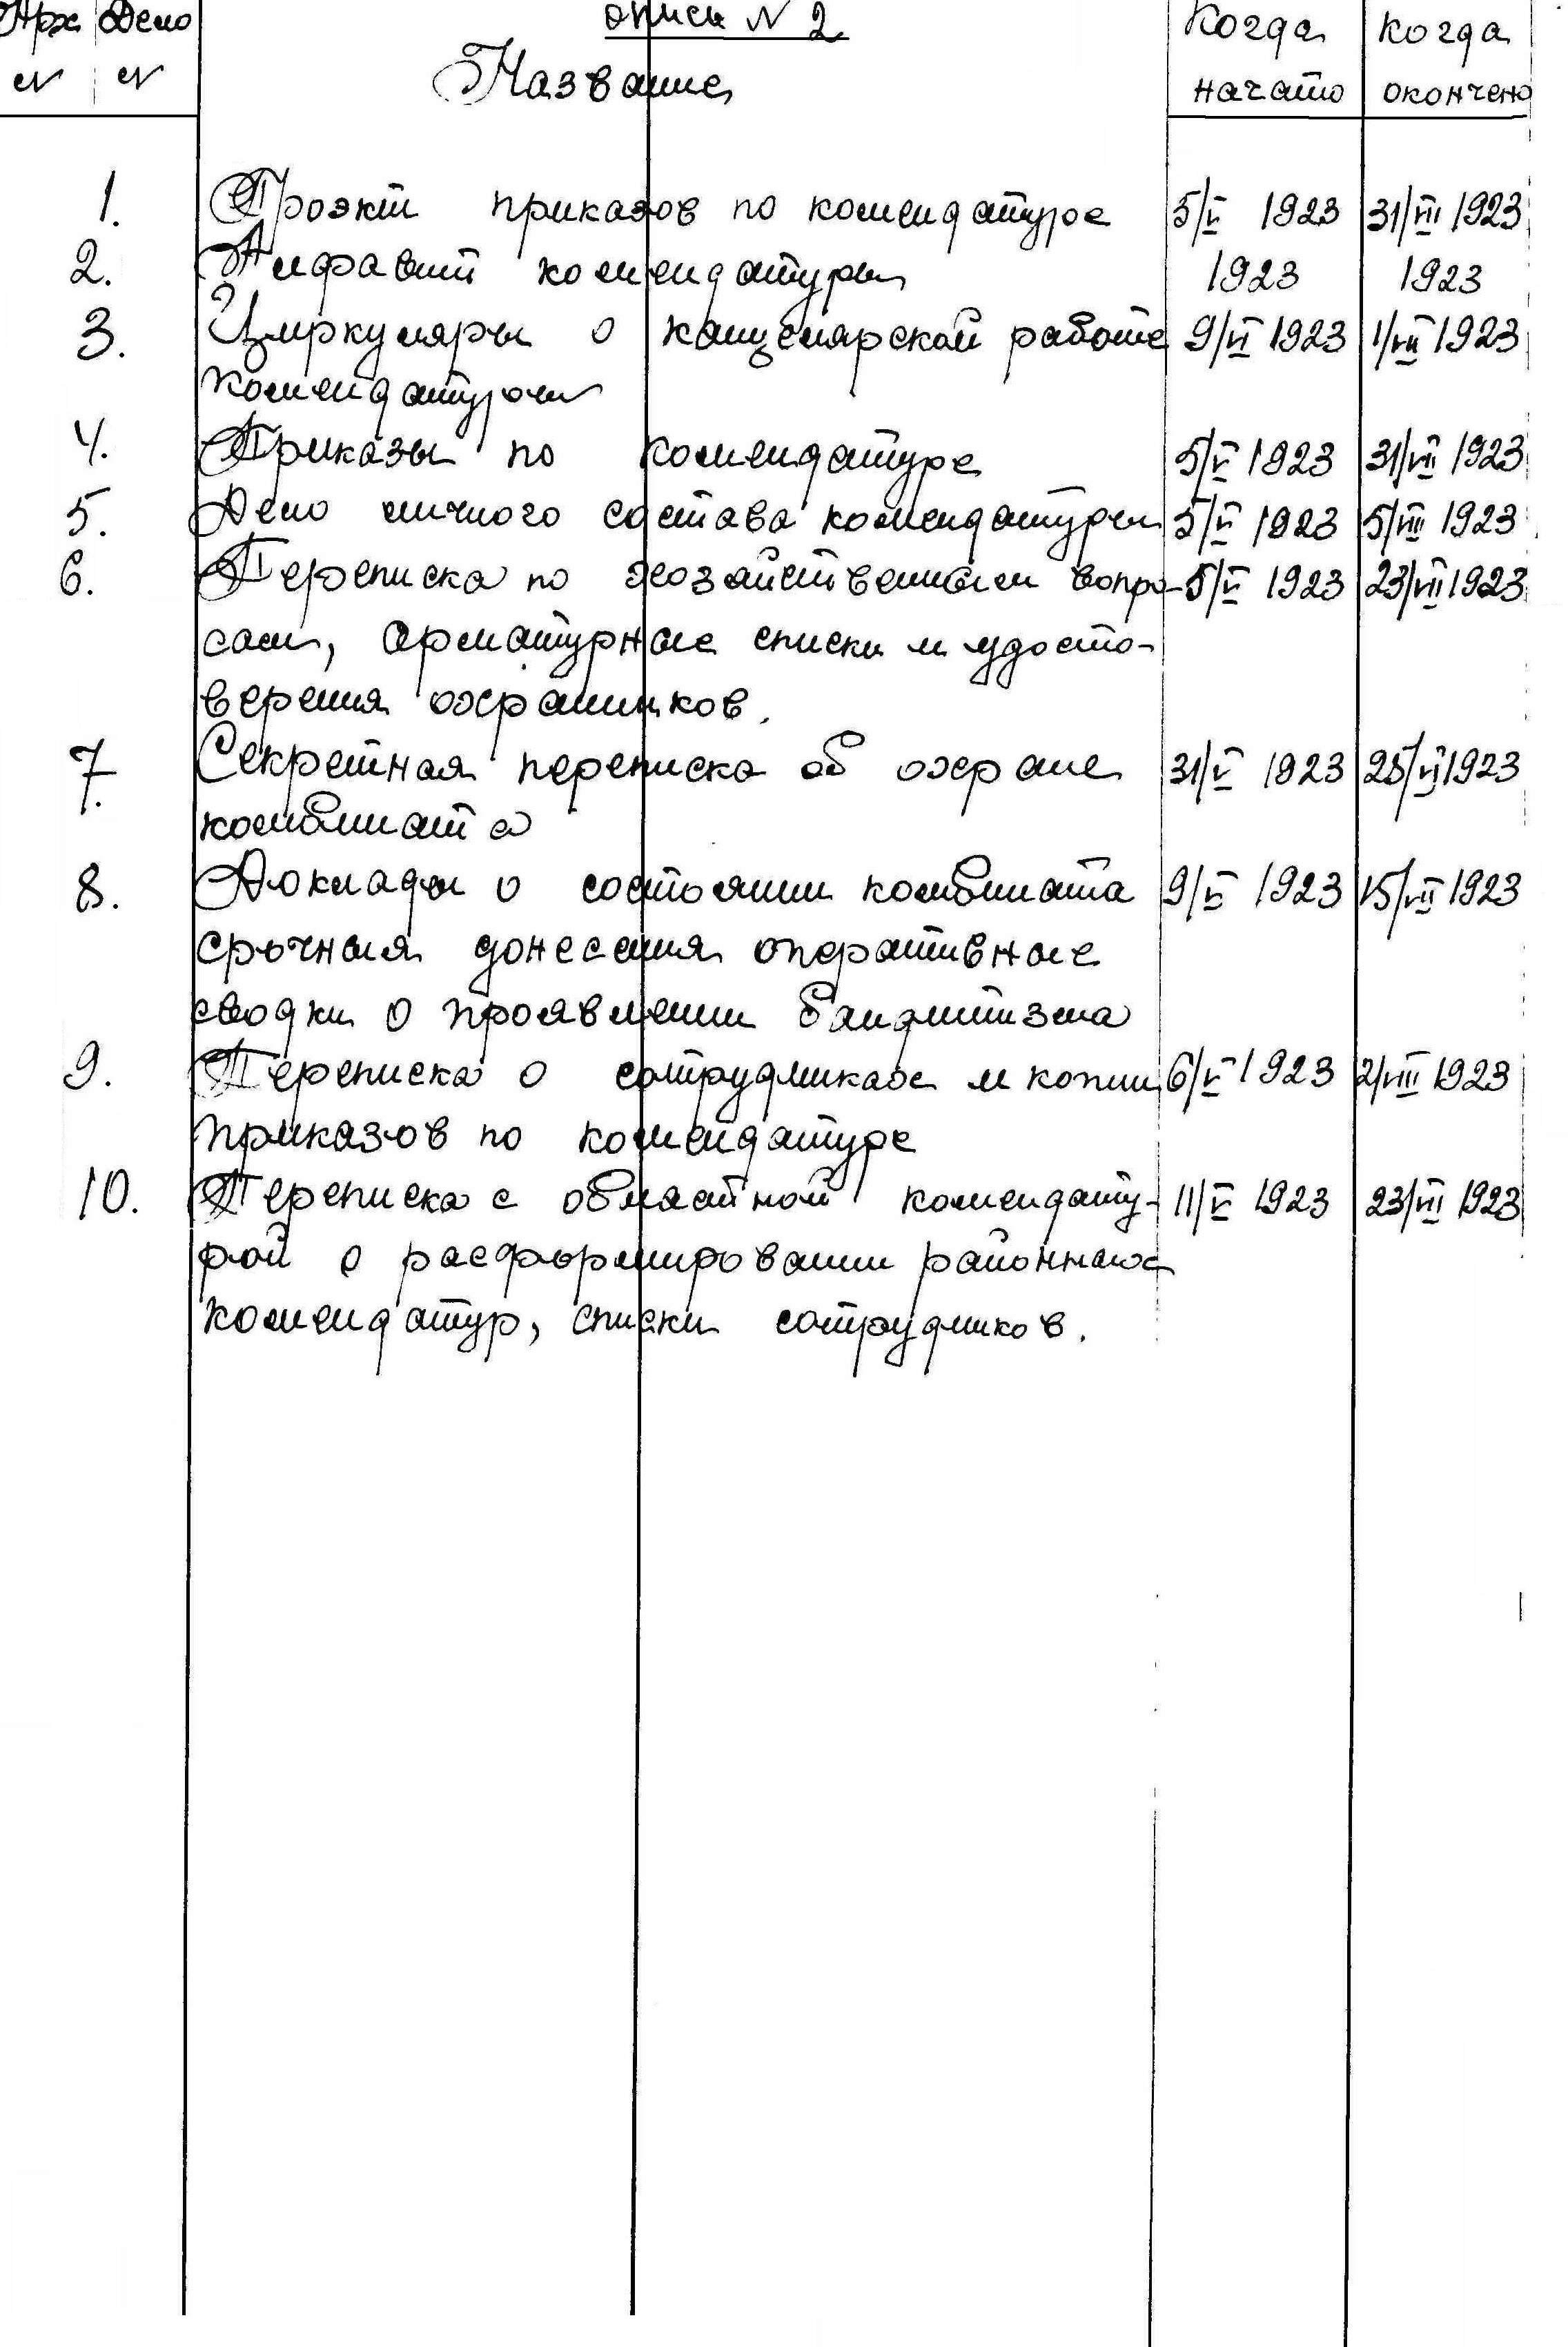 Арх Дело опись N 2 Когда Когда
N N Название начато окончено
1. Проэкт приказов по комендатуре 5/V 1923 31/VIII 1923
2. Алфавит комендатуры 1923 1923
3. Циркуляры о канцелярской работе 9/VI 1923 1/VII 1923
комендатуры
4. Приказы по комендатуре 5/V 1923 31/VII 1923
5. Дело личного состава комендатуры 5/V 1923 5/VIII 1923
6. Переписка по хозяйственным вопро- 5/V 1923 23/VII 1923
сам, арматурные списки и удосто-
верения охранников.
7. Секретная переписка об охране 31/V 1923 25/VI 1923
комбината
8. Доклады о состоянии комбината 9/V 1923 15/VII 1923
срочныя донесения оперативные
сводки о проявлении бандитизма
9. Переписка о сотрудниках и копии 6/V 1923 2/VIII 1923
приказов по комендатуре
10. Переписка с областной комендату- 11/V 1923 23/VII 1923
рой о расформировании районных
комендатур, списки сотрудников.